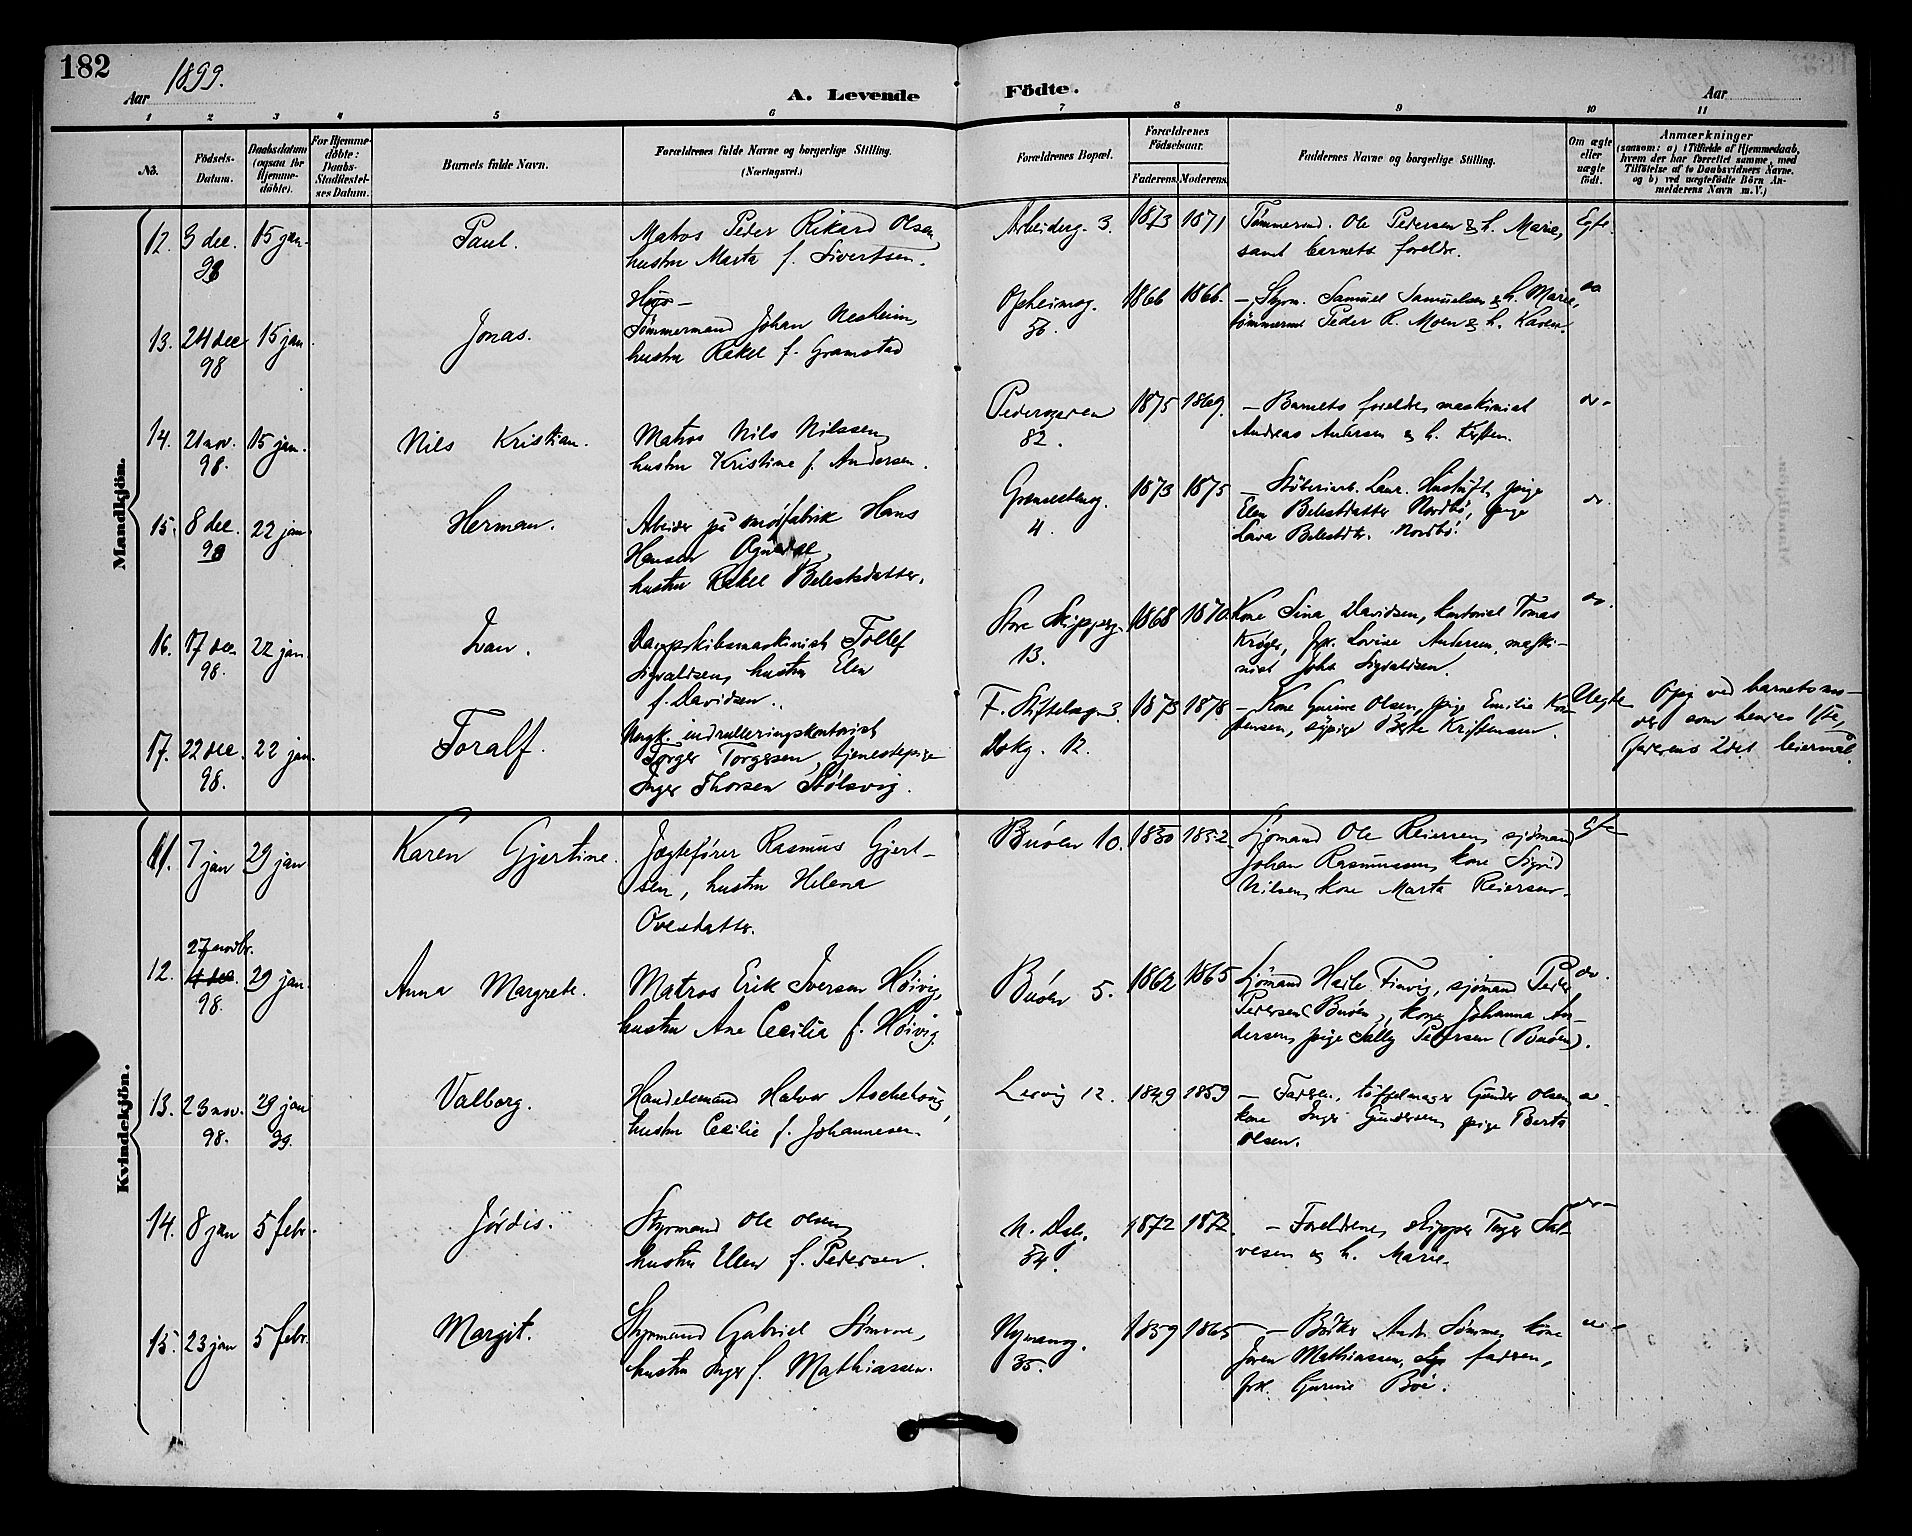 182
Aar 1899.
A. Levende Födte.
Aar
1 2 3 4 5 6 7 8 9 10 11
No.
Födsels-Datum.
Daabsdatum (ogsaa for Hjemme-döbte).
For Hjemme-döbte: Daabs-Stadfæstel-ses Datum.
Barnets fulde Navn.
Forældrenes fulde Navne og borgerlige Stilling.
(Næringsvei.)
Forældrenes Bopæl.
Forældrenes Födselsaar.
Faderens. Moderens.
Faddernes Navne og borgerlige Stilling.
Om ægte eller uægte födt.
Anmærkninger
(saasom: a) i Tilfælde af Hjemmedaab,
hvem der har forrettet samme, med
Tilföielse af to Daabsvidners Navne.
og b) ved uægtefödte Börn An-
melderens Navn m. V.)
Mandkjön.
12. 3 dec. 98 15 jan. Paul.
Matros Peder Rikard Olsen,
hustru Marta f. Sivertsen.
Arbeiderg. 3. 1873 1871
Tømmermd. Ole Pedersen & h. Marie,
samt barnets foreldre.
Egte.
13. 24 dec 98 15 jan Jonas.
Tømmermand Johan Nesheim,
hustru Rakel f. Gramstad
Opheimsg. 56. 1866 1866.
– Styrm. Samuel Samuelsen & h. Marie,
tømmermd Peder R. Moen & h. Karen.
do
14. 21 nov. 98. 15 jan. Nils Kristian.
Matros Nils Nilssen,
hustru Kristine f. Andersen.
Pedersgaden 82. 1875 1869.
– Barnets foreldre, maskinist
Andreas Andersen & h. Kirsten.
do
15. 8 dec. 98 22 jan Herman.
Arbeider på smørfabrik Hans
Hansen Ognedal,
hustru Rakel Belestsdatter.
4. 1873 1875
Elen Belestsdatter Nordbø, pige
Lava Nordbø.
do.
16. 17 dec. 98. 22 jan Ivan.
Dampskibsmaskinist Tollef
Sigvaldsen, hustru Elen
f. Davidsen.
Store Skipperg. 13. 1868 1870
Kone Sina Davidsen, kontorist Tomas
Krøger, frk. Lovise Andersen, maski-
nist Johs Sigvaldsen.
do.
17. 22 dec. 98. 22 jan. Toralf.
Ungk. indrulleringskontorist
Torger Torgersen, tjenestepige
Inger Thorsen Stølsvig.
F. Stiftelsesg. 3.
Dokg. 12. 1873 1878
– Kone Gurine Olsen, pige Emilie Kri-
stensen, sypige Berte Kristensen.
Uegte
Opg. ved barnets mo-
der som hendes 1ste,
faderens 2det leiermål.
Kvindekjön.
11. 7 jan 29 jan Karen Gjertine.
Jægtefører Rasmus Gjert-
sen, hustru Helena
Ovesdatter.
Buöen 10. 1850 1852
Sjömand Ole Reiersen, sjömand
Johan Rasmussen, kone Sigrid
Nilsen, kone Marta Reiersen.
Egte
12. 27 novbr. 4 dec. 98. 29 jan. Anna Margrete.
Matros Erik Iversen Höivig,
hustru Ane Cecilia f. Höivig.
Buöen 5. 1862 1865
Sjömand Finvig, sjömand Peder
Pedersen (Buöen), kone Johanna An-
dersen, pige Sally Petersen (Buöen).
do.
13. 23 nov. 98. 29 jan 99. Valborg.
Handelsmand Halvor Aschehoug,
hustru Cecilie f. Johannesen.
Lervig 12. 1849 1859
– Faderen, töffelmager Gunder Olsen,
kone Inger Gundersen, pige Berta
Olsen.
do.
14. 8 jan 5 febr. Jördis.
Styrmand Ole Olsen,
hustru Ellen f. Pedersen.
N. Dals. 54. 1872 1872.
– Foreldrene, skipper Tager Sal-
vesen og h. Marie.
do
15. 23 jan 5 febr. Margit.
Styrmand Gabriel Sömme,
hustru Inger f. Mathiassen.
Nymansg. 35. 1859 1865
– Bödker Andr. Sömme, kone
Joren Mathiassen, faderen,
frk. Gurine Böe.
do